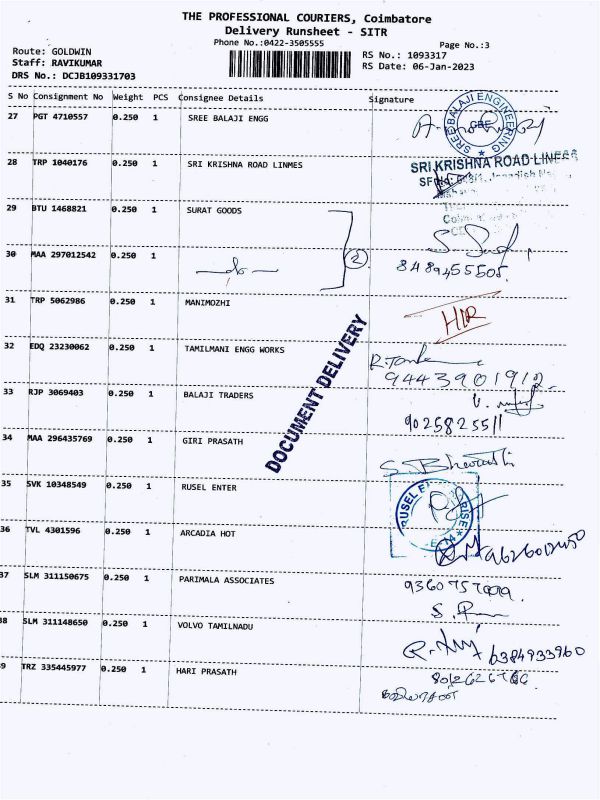 THE PROFESSIONAL COURIERS, Coimbatore
Delivery Runsheet - SITR
Phone No.:0422-3505555
Page No.:3
Route: GOLDWIN
RS No.: 1093317
Staff: RAVIKUMAR
RS Date: 06-Jan-2023
DRS No.: DCJB109331703
S No Consignment No Weight PCS Consignee Details Signature
27 PGT 4710557 0.250 1 SREE BALAJI ENGG
SREE BALAJI ENGINEERING
GBE
28 TRP 1040176 0.250 1 SRI KRISHNA ROAD LINMES
SRI KRISHNA ROAD LINES
29 BTU 1468821 0.250 1 SURAT GOODS
30 MAA 297012542 0.250 1 -do- 2
8489455505
31 TRP 5062986 0.250 1 MANIMOZHI
32 EDQ 23230062 0.250 1 TAMILMANI ENGG WORKS
9443901912
DOCUMENT DELIVERY
33 RJP 3069403 0.250 1 BALAJI TRADERS
9025825511
34 MAA 296435769 0.250 1 GIRI PRASATH
35 SVK 10348549 0.250 1 RUSEL ENTER
36 TVL 4301596 0.250 1 ARCADIA HOT
37 SLM 311150675 0.250 1 PARIMALA ASSOCIATES
38 SLM 311148650 0.250 1 VOLVO TAMILNADU
6384933960
39 TRZ 335445977 0.250 1 HARI PRASATH